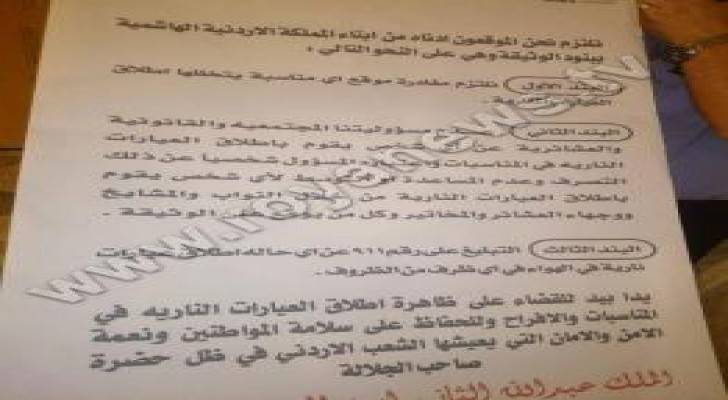 نلتزم نحن الموقعون ادناه من ابناء المملكة الاردنية الهاشمية
ببنود الوثيقة وهي على النحو التالي :
البند الاول نلتزم مغادرة موقع اي مناسبة يتخللها اطلاق
العيارات النارية .
البند الثاني مسؤوليتنا المجتمعيه والقانونية
والعشائرية عن يقوم باطلاق العيارات
الناريه في المناسبات المسؤول شخصيا عن ذلك
التصرف وعدم المساعدة لأي شخص يقوم
باطلاق العيارات النارية من النواب والمشايخ
ووجهاء العشائر والمخاتير وكل من الوثيقة .
البند الثالث التبليغ على رقم ٩١١ عن اي حاله اطلاق عيارات
نارية في الهواء في اي ظرف من الظروف .
يدا بيد للقضاء على ظاهرة اطلاق العيارات الناريه في
المناسبات والافراح وللحفاظ على سلامة المواطنين ونعمة
الامن والامان التي يعيشها الشعب الاردني في ظل حضرة
صاحب الجلالة
الملك عبدالله الثاني
www.royanews.tv